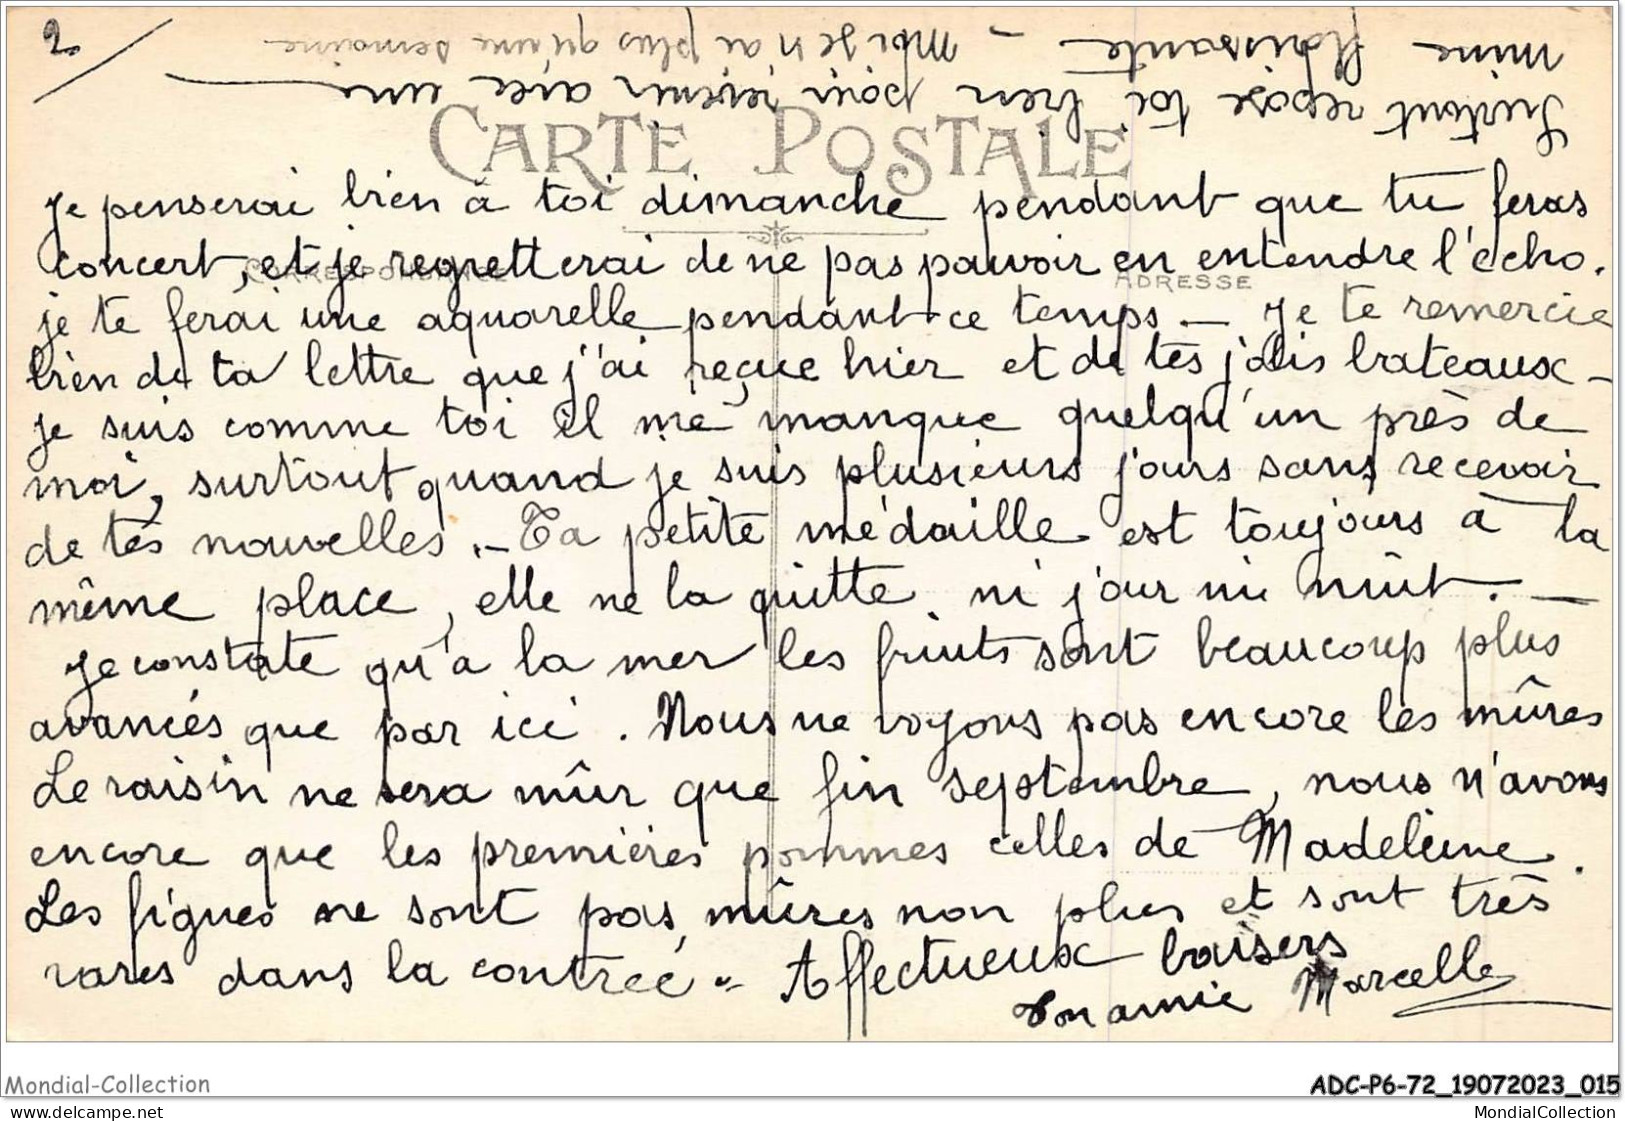 2
CARTE POSTALE
CORRESPONDANCE
ADRESSE
je penserai bien à toi dimanche pendant que tu feras
concert, et je regretterai de ne pas pouvoir en entendre l'écho.
je te ferai une aquarelle pendant ce temps – Je te remercie
bien de ta lettre que j'ai reçue hier et de tes jolis bateaux –
je suis comme toi il me manque quelqu'un près de
moi, surtout quand je suis plusieurs jours sans recevoir
de tes nouvelles. – Ta petite médaille est toujours à la
même place, elle ne la quitte ni jour ni nuit. –
je constate qu'à la mer les fruits sont beaucoup plus
avancés que par ici. Nous ne voyons pas encore les mûres
Le raisin ne sera mûr que fin septembre, nous n'avons
encore que les premières pommes celles de Madeleine.
Les figues ne sont pas mûres non plus et sont très
rares dans la contrée – Affectueux baisers
Ton amie Marcelle
Surtout repose toi bien pour revenir avec une
mine florissante – Moi je n'ai plus qu'une semaine
Mondial-Collection
ADC-P6-72_19072023_015
www.delcampe.net
MondialCollection